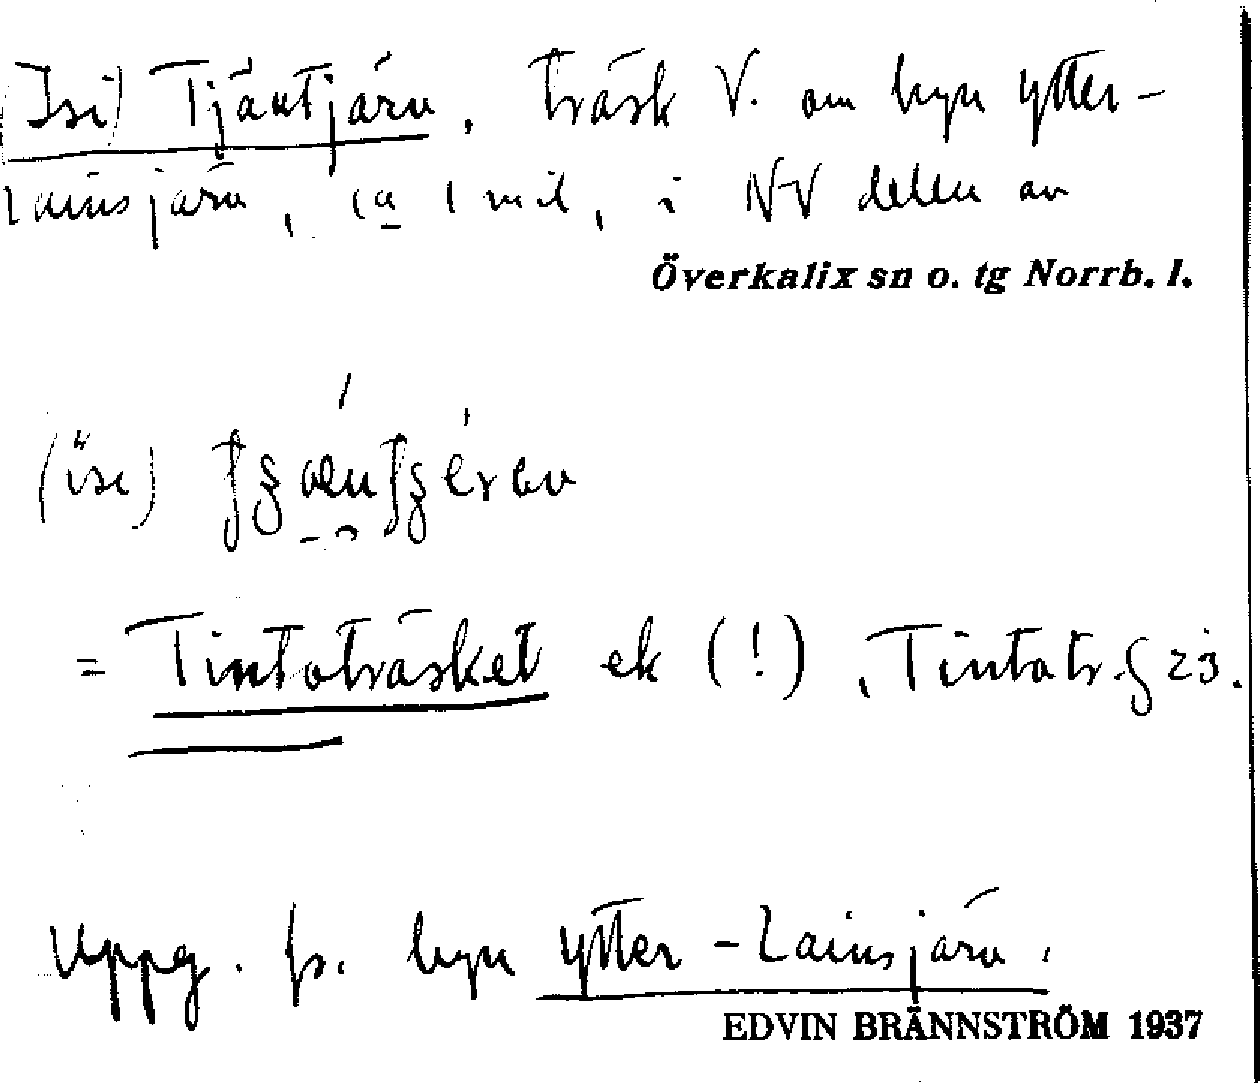 (Isi) Tjäntjärv, träsk V. om byn Ytter-
Lainsjärv, ca 1 mil, i NV delen av
Överkalix sn o. tg Norrb. l.
= Tintoträsket ek (!), Tintotr. G 23.
Uppg. fr. byn Ytter-Lainsjärv.
EDVIN BRÄNNSTRÖM 1937